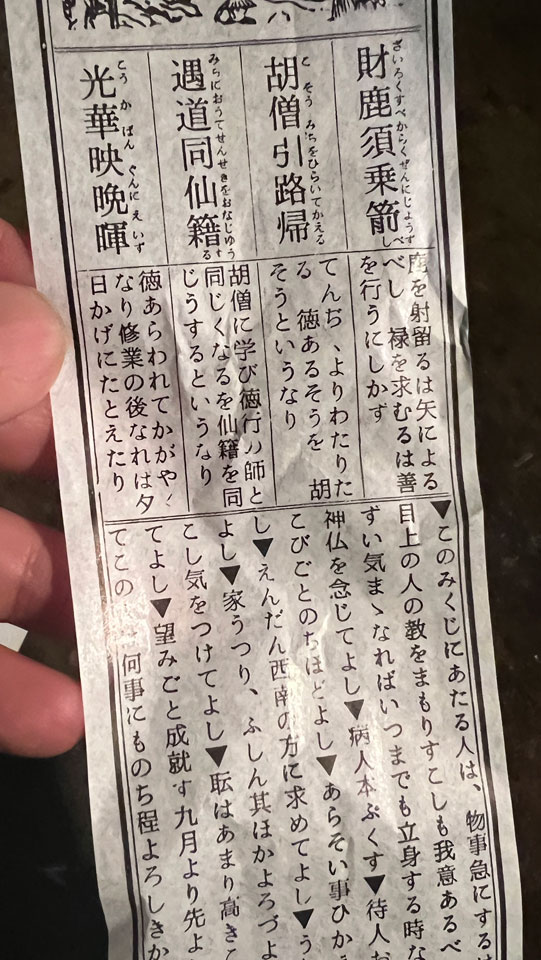 財鹿須乗箭
ざいろくすべからくぜんにじょうずべし
鹿を射留るは矢による
べし 禄を求むるは善
を行うにしかず
胡僧引路帰
こそうみちをひらいてかえる
てんぢくよりわたりた
る 徳あるそうを 胡
そうというなり
遇道同仙籍
みちにおうてせんせきをおなじゅうする
胡僧に学び徳行の師と
同じくなるを仙籍を同
じうするというなり
光華映晩暉
こうかばんぐんにえいず
徳あらわれてかがやく
なり修業の後なれは夕
日かげにたとえたり
▼このみくじにあたる人は、物事急にするは
目上の人の教をまもりすこしも我意あるべ
ずい気まゝなればいつまでも立身する時な
神仏を念じてよし▼病人本ぷくす▼待人お
こびごとのちほどよし▼あらそい事ひか
し▼えんだん西南の方に求めてよし▼う
よし▼家うつり、ふしん其ほかよろづよ
こし気をつけてよし▼転はあまり高きこ
てよし▼望みごと成就す九月より先よ
てこの 何事にものち程よろしきか